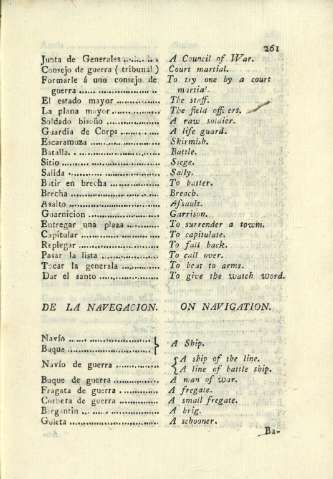 261
Junta de Generales ........... A Council of War.
Consejo de guerra ( tribunal ) Court martial.
Formarle á uno consejo de To try one by a court
guerra ..................... martial.
El estado mayor ............. The staff.
La plana mayor .............. The field officers.
Soldado bisoño .............. A raw soldier.
Guardia de Corps ........... A life guard.
Escaramuza .................. Skirmish.
Batalla. .................... Battle.
Sitio ....................... Siege.
Salida ...................... Sally.
Batir en brecha ............. To batter.
Brecha ...................... Breach.
Asalto ...................... Assault.
Guarnicion .................. Garrison.
Entregar una plaza .......... To surrender a town.
Capitular ................... To capitulate.
Replegar .................... To fall back.
Pasar la lista .............. To call over.
Tocar la generala ........... To beat to arms.
Dar el santo ................ To give the watch word.
DE LA NAVEGACION. ON NAVIGATION.
Navío ......................
Buque ...................... } A Ship.
Navío de guerra ............. { A ship of the line.
A line of battle ship.
Buque de guerra ............. A man of war.
Fragata de guerra ........... A fregate.
Corbeta de guerra ........... A small fregate.
Bergantin ................... A brig.
Goleta ...................... A schooner.
Ba-